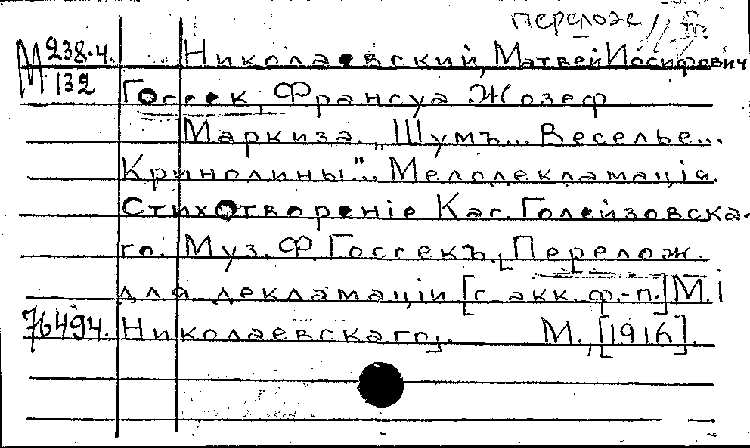 перелож
М 238.4. Николаевский, Матвей Иосифович
М. 132 Госсек, Франсуа Жозеф
Маркиза. „Шумъ... Веселье...
Кринолины"... Мелодекламація.
Стихотвореніе Кас. Голейзовска-
го. Муз. Ф. Госсекъ, [Перелож.
для декламаціи [с акк. ф.-п.] М. І
76494. Николаевскаго]. М., [1916].